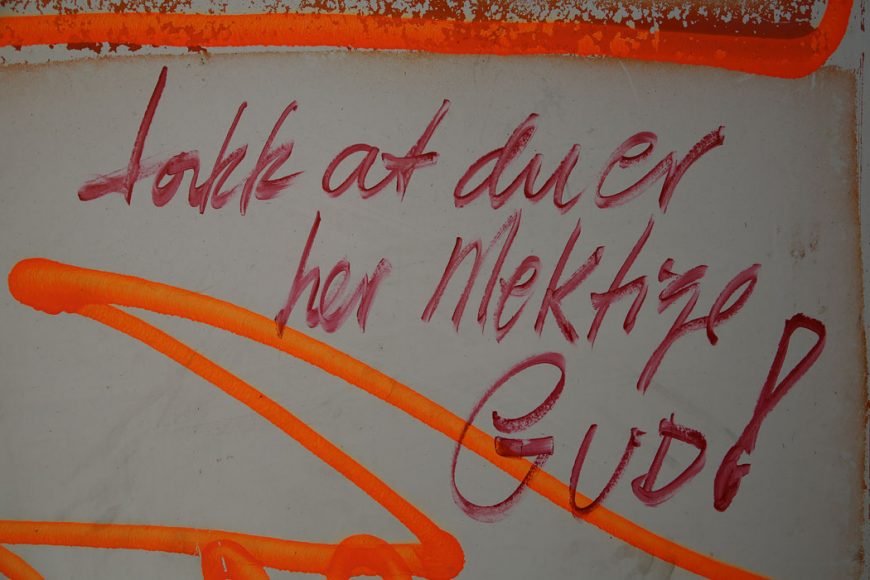 takk at du er
her Mektige
GUD!